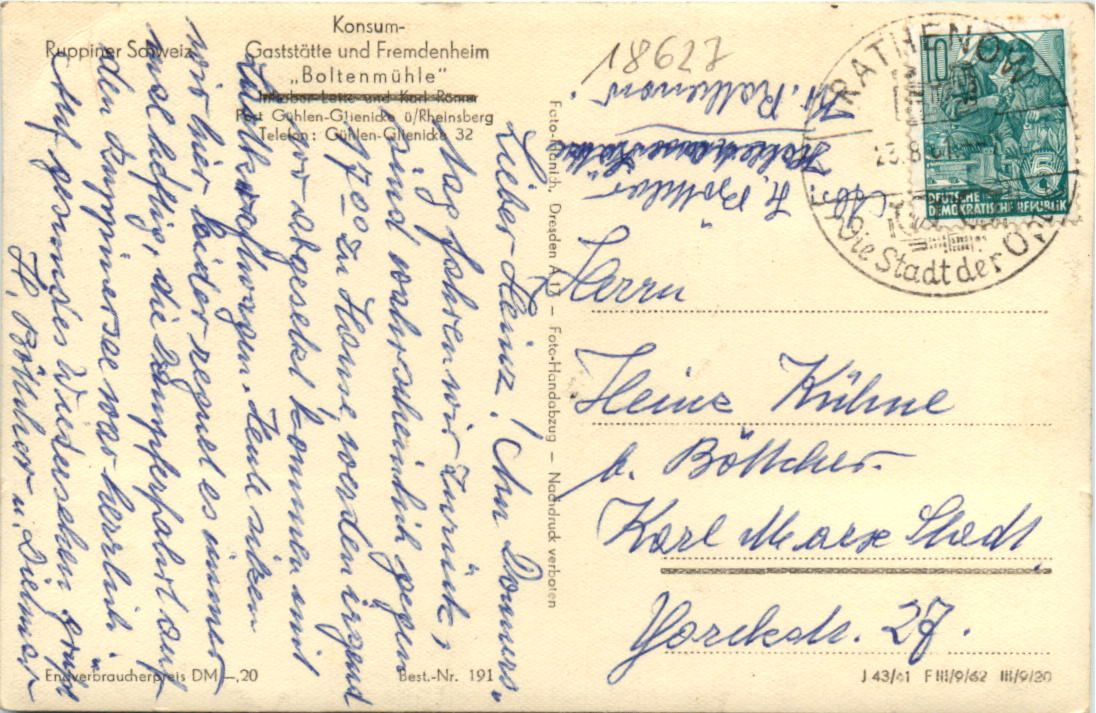 Konsum-
Ruppiner Schweiz
Gaststätte und Fremdenheim
„Boltenmühle"
Inhaber Lotte und Karl Römer
Post Gühlen-Glienicke ü/Rheinsberg
Telefon: Gühlen-Glienicke 32
Lieber Heinz! Am Donners-
tag fahren wir zurück,
sind wahrscheinlich gegen
17,00 zu Hause, werden irgend
wo abgesetzt kommen mit
Lastkraftwagen. Heute sitzen
wir hier leider regnet es immer
mal heftig, die Dampferfahrt auf
den Ruppinersee war herrlich.
Auf gesundes Wiedersehen grüßt
H. Böttcher u. Dietmar
Foto-Mönich, Dresden A 13 – Foto-Handabzug – Nachdruck verboten
18627
Abs.:
H. Böttcher
Kr. Rathenow
RATHENOW
Die Stadt der O
10
5
DEUTSCHE
DEMOKRATISCHE REPUBLIK
Herrn
Heinz Kühne
b. Böttcher
Karl Marx Stadt
Yorckstr. 27.
Endverbraucherpreis DM –,20
Best.-Nr. 191
J 43/61 F III/9/62 III/9/20